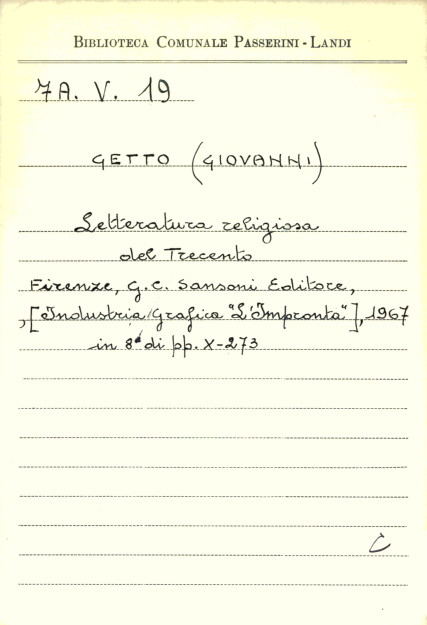 BIBLIOTECA COMUNALE PASSERINI - LANDI
7A. V. 19
GETTO (GIOVANNI)
Letteratura religiosa
del Trecento
Firenze, G. C. Sansoni Editore,
, [Industria Grafica "L'Impronta"], 1967
in 8° di pp. X-273
C